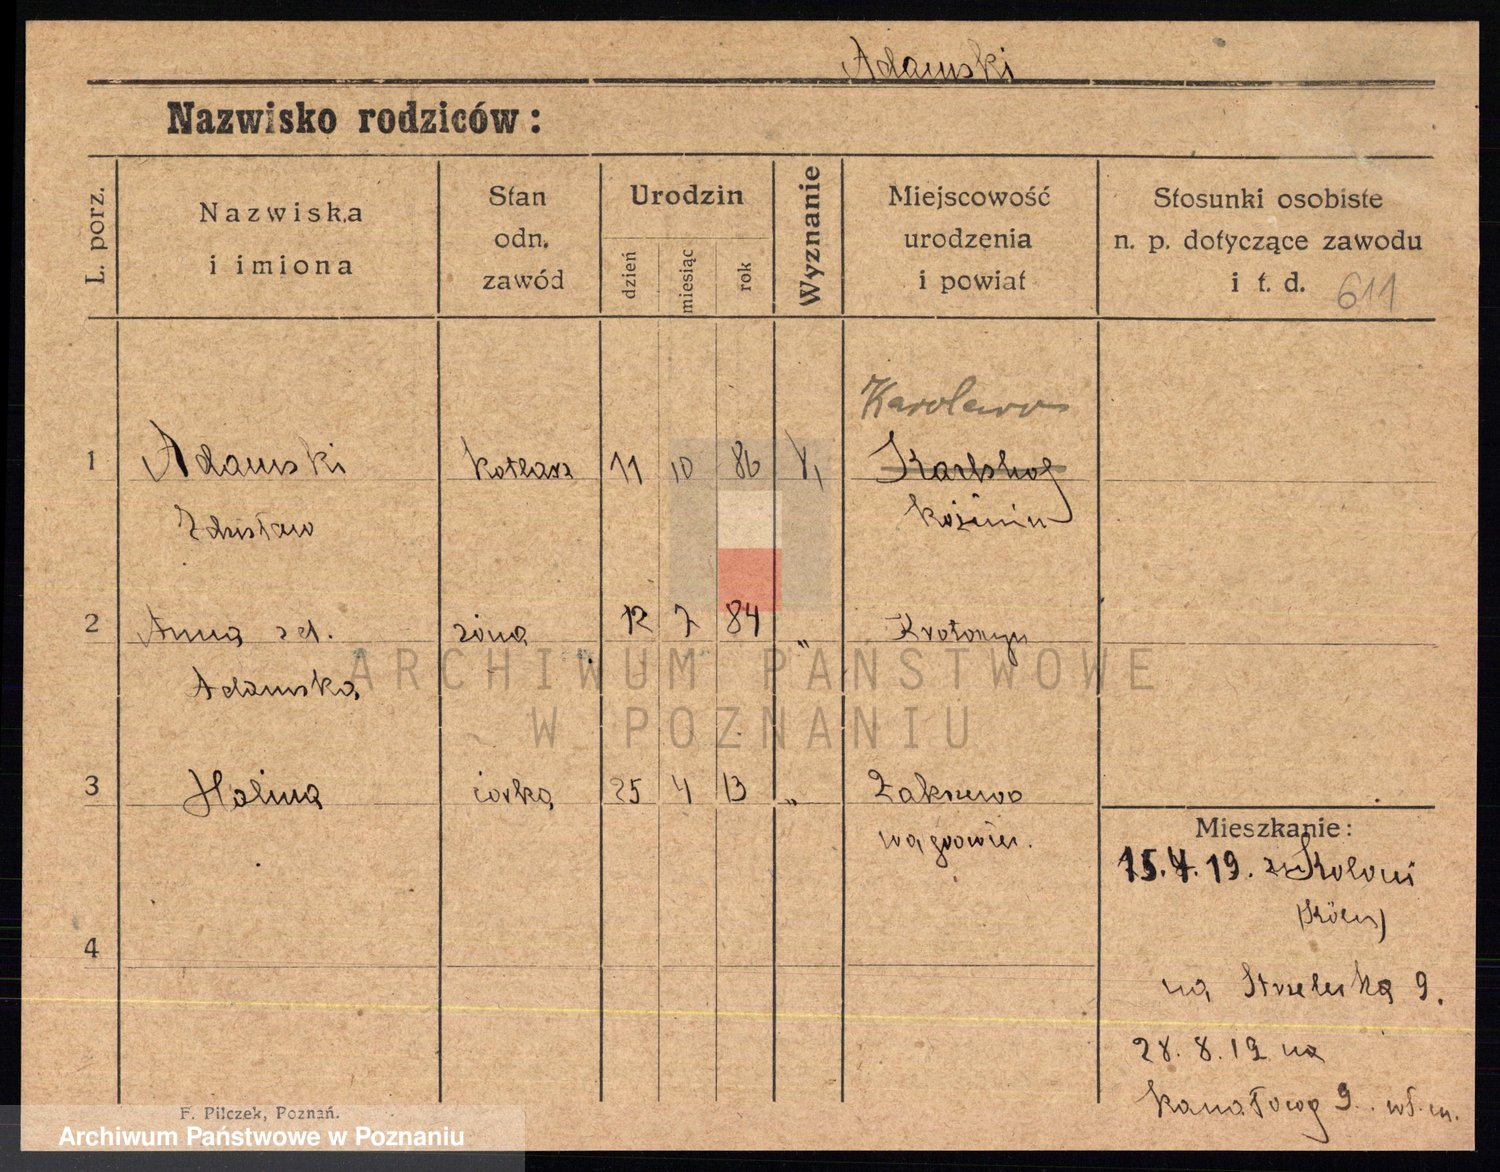 Adamski
Nazwisko rodziców:
L. porz.
Nazwiska
i imiona
Stan
odn.
zawód
Urodzin
dzień
miesiąc
rok
Wyznanie
Miejscowość
urodzenia
i powiat
Stosunki osobiste
n. p. dotyczące zawodu
i t. d.
611
Karolewo
1 Adamski kotlarz 11 10 86 Karlshof
Zdzisław Koźmin
2 Anna żona 12 7 84 " Krotoszyn
Adamska
ARCHIWUM PAŃSTWOWE
W POZNANIU
3 Halina córka 25 4 13 " Zakrzewo
wągrowiec.
4
Mieszkanie:
15.4.19. z Kolonii
(Köln)
na Strzelecką 9.
28.8.19 na
Kanałową 9.
F. Pilczek, Poznań.
Archiwum Państwowe w Poznaniu